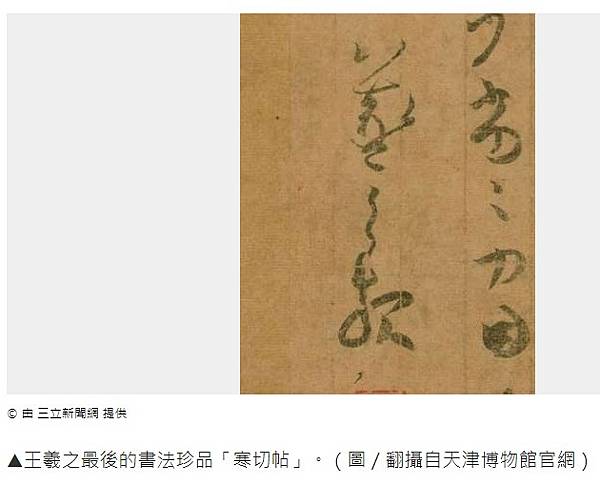 劣〻力因
羲之報
© 由 三立新聞網 提供
▲王羲之最後的書法珍品「寒切帖」。(圖/翻攝自天津博物館官網)